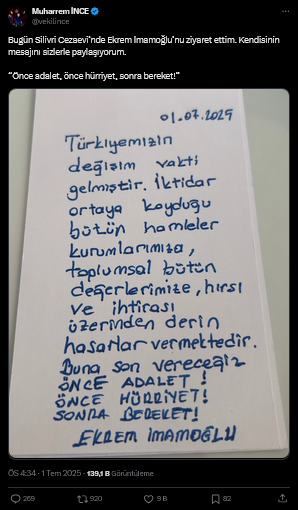 Muharrem İNCE
@vekilince
Bugün Silivri Cezaevi'nde Ekrem İmamoğlu'nu ziyaret ettim. Kendisinin
mesajını sizlerle paylaşıyorum.
“Önce adalet, önce hürriyet, sonra bereket!”
01.07.2025
Türkiyemizin
değişim vakti
gelmiştir. İktidar
ortaya koyduğu
bütün hamleler
kurumlarımıza,
toplumsal bütün
değerlerimize, hırsı
ve ihtirası
üzerinden derin
hasarlar vermektedir.
Buna son vereceğiz
ÖNCE ADALET!
ÖNCE HÜRRİYET!
SONRA BEREKET!
EKREM İMAMOĞLU
ÖS 4:34 · 1 Tem 2025 · 139,1 B Görüntüleme
269 920 9 B 82